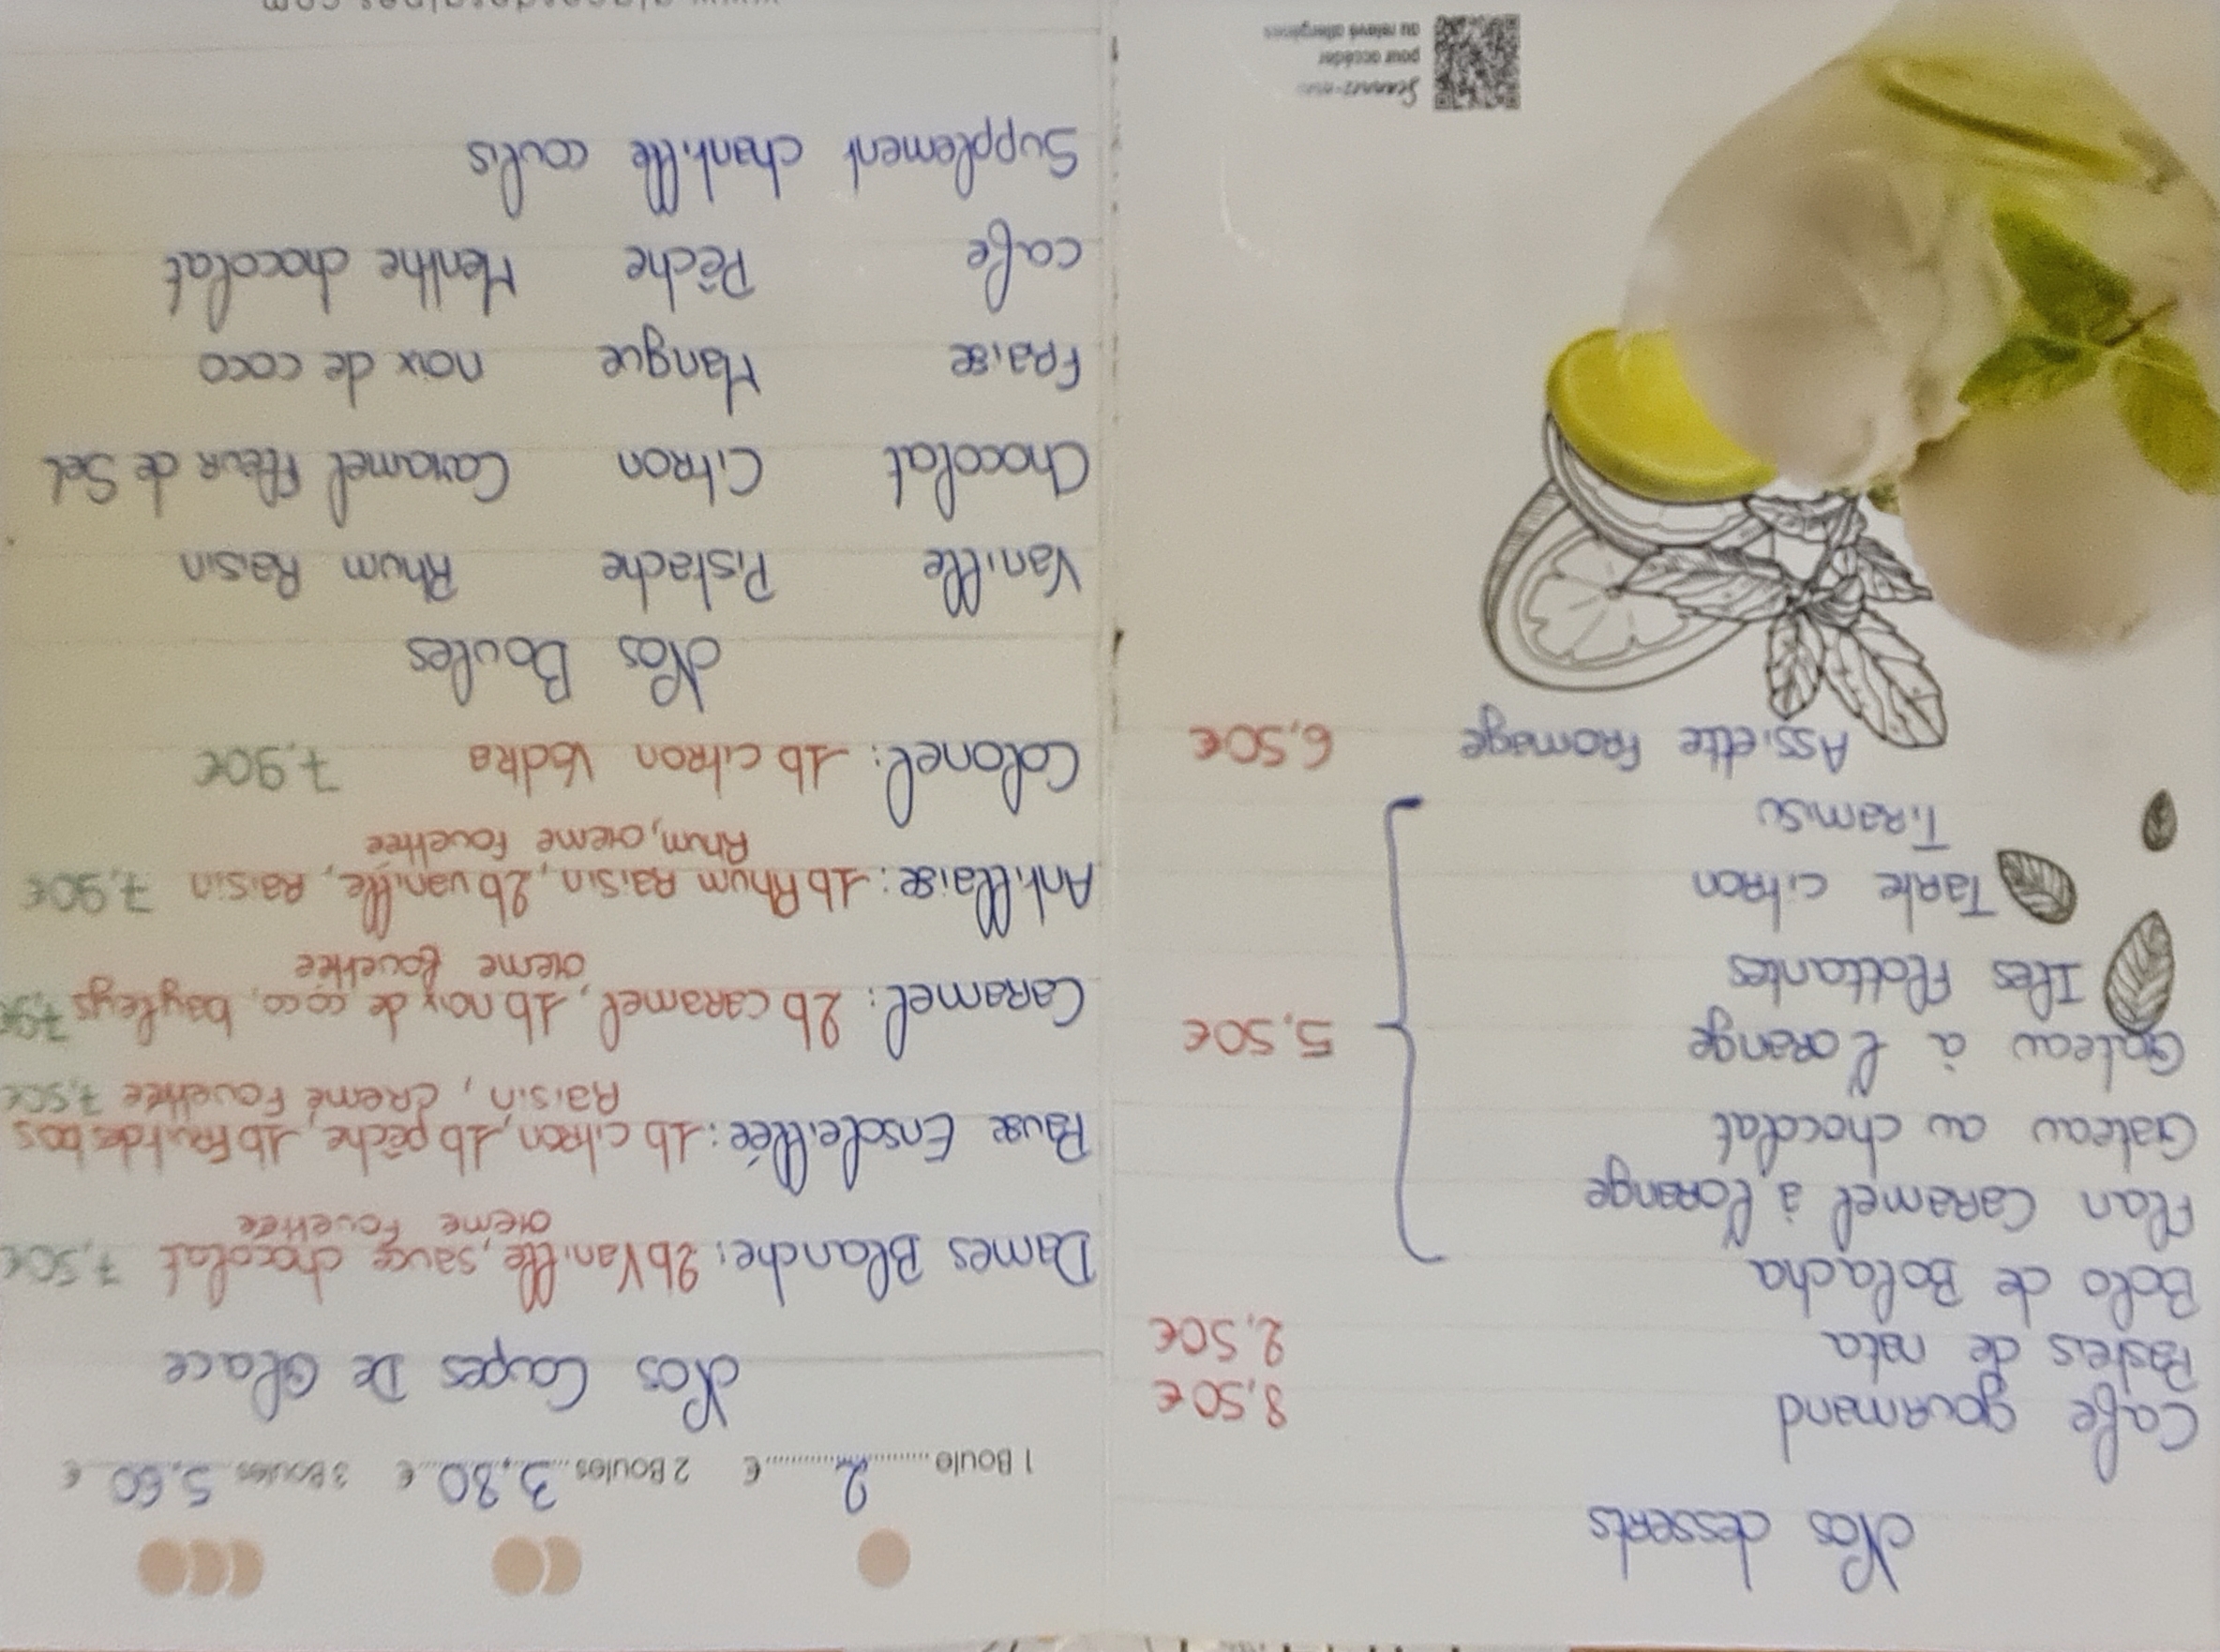 Nos desserts
Cafe gourmand 8,50€
Pasteis de nata 2,50€
Bolo de Bolacha
Flan Caramel à l'orange
Gateau au chocolat
Gateau à l'orange 5,50€
Iles Flottantes
Tarte citron
Tiramisu
Assiette Fromage 6,50€
Scannez-moi
pour accéder
au relevé allergènes
1 Boule 2 € 2 Boules 3,80 € 3 Boules 5,60 €
Nos Coupes De Glace
Dames Blanche: 2b Vanille, sauce chocolat 7,50€
creme Fouettée
Pause Ensoleillée: 1b citron, 1b pêche, 1b Fruit de bois
Raisin, creme Fouettée 7,50€
Caramel: 2b caramel, 1b noix de coco, bayleys 7,90€
creme fouettée
Antillaise: 1b Rhum Raisin, 2b vanille, Raisin 7,90€
Rhum, creme fouettée
Colonel: 1b citron Vodka 7,90€
Nos Boules
Vanille Pistache Rhum Raisin
Chocolat Citron Caramel Fleur de Sel
Fraise Mangue noix de coco
cafe Pêche Menthe chocolat
Supplement chantille coulis